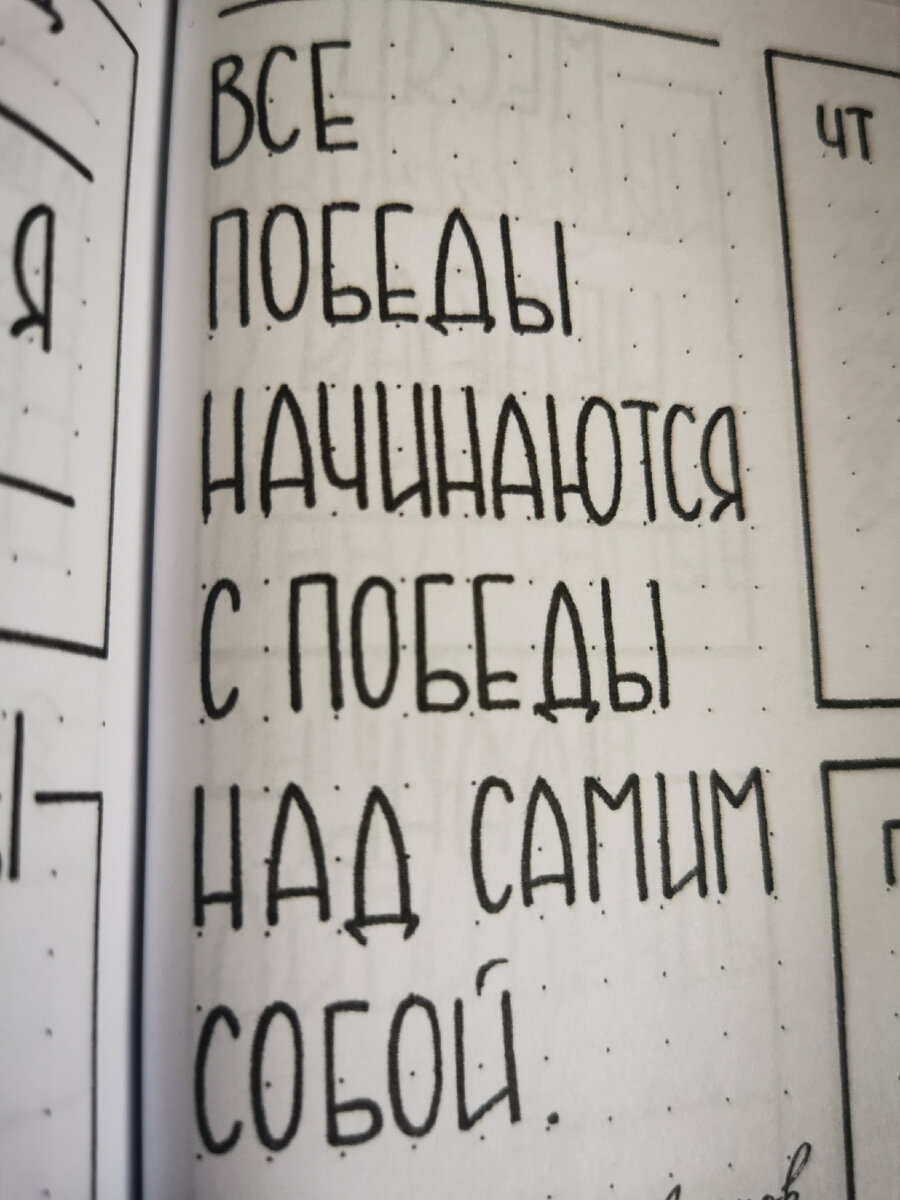 ВСЕ
ПОБЕДЫ
НАЧИНАЮТСЯ
С ПОБЕДЫ
НАД САМИМ
СОБОЙ.
ЧТ
Я